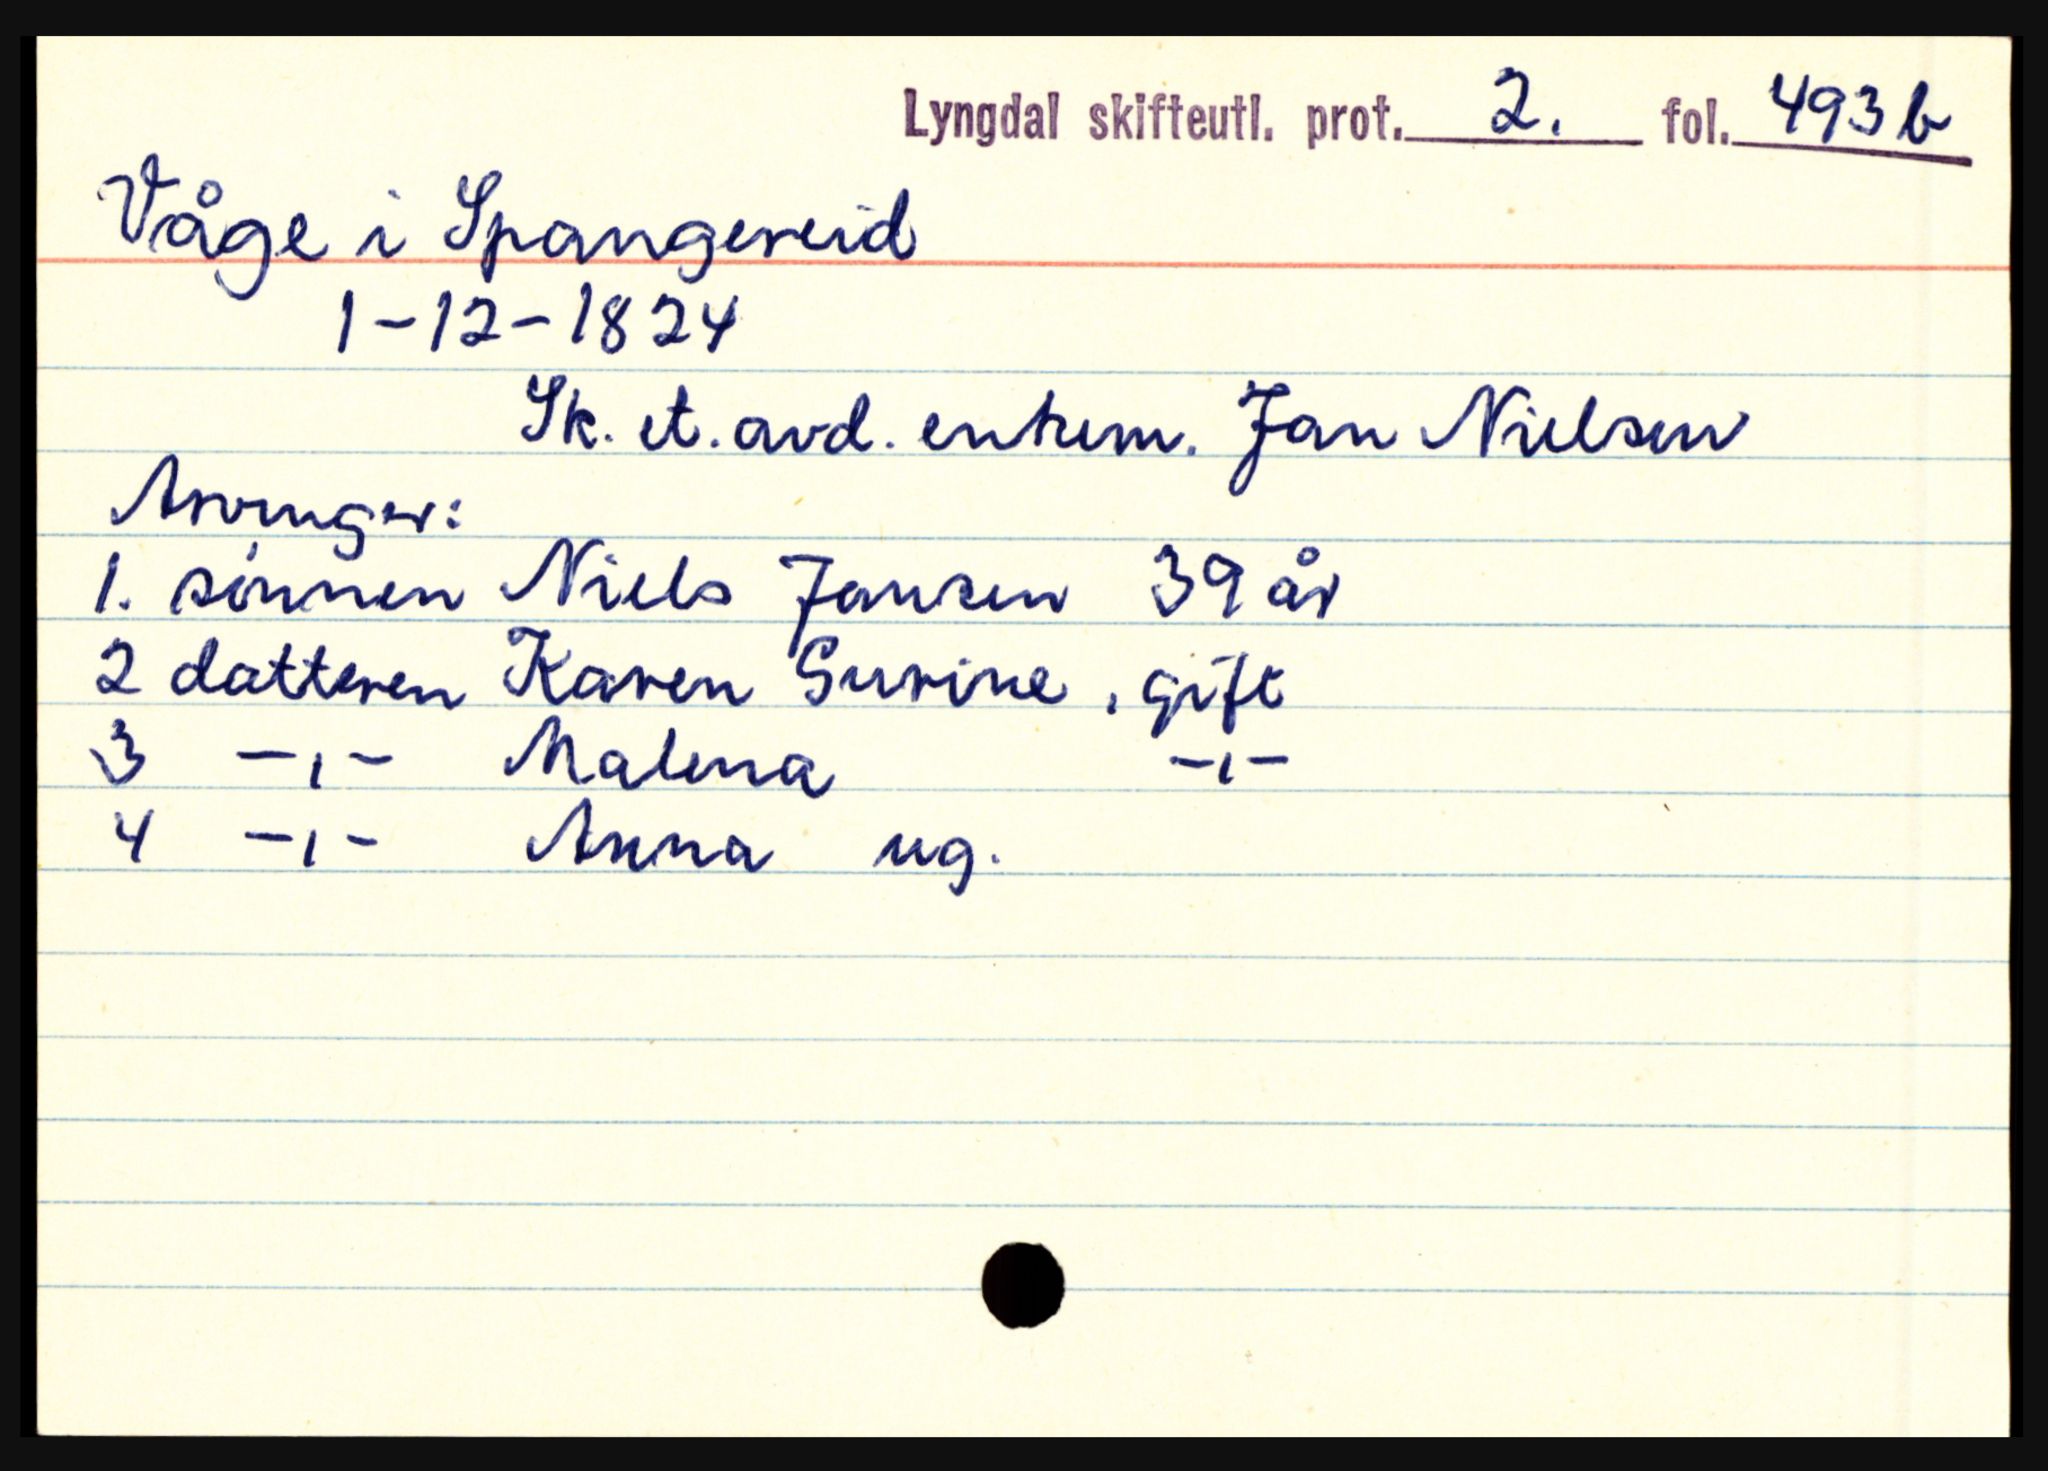 Lyngdal skifteutl. prot. 2. fol. 493 b
Våge i Spangereid
1-12-1824
Sk. et. avd. enkem. Jan Nielsen
Arvinger:
1. sønnen Niels Jansen 39 år
2 datteren Karen Surine, gift
3 -"- Malena -"-
4 -"- Anna ug.